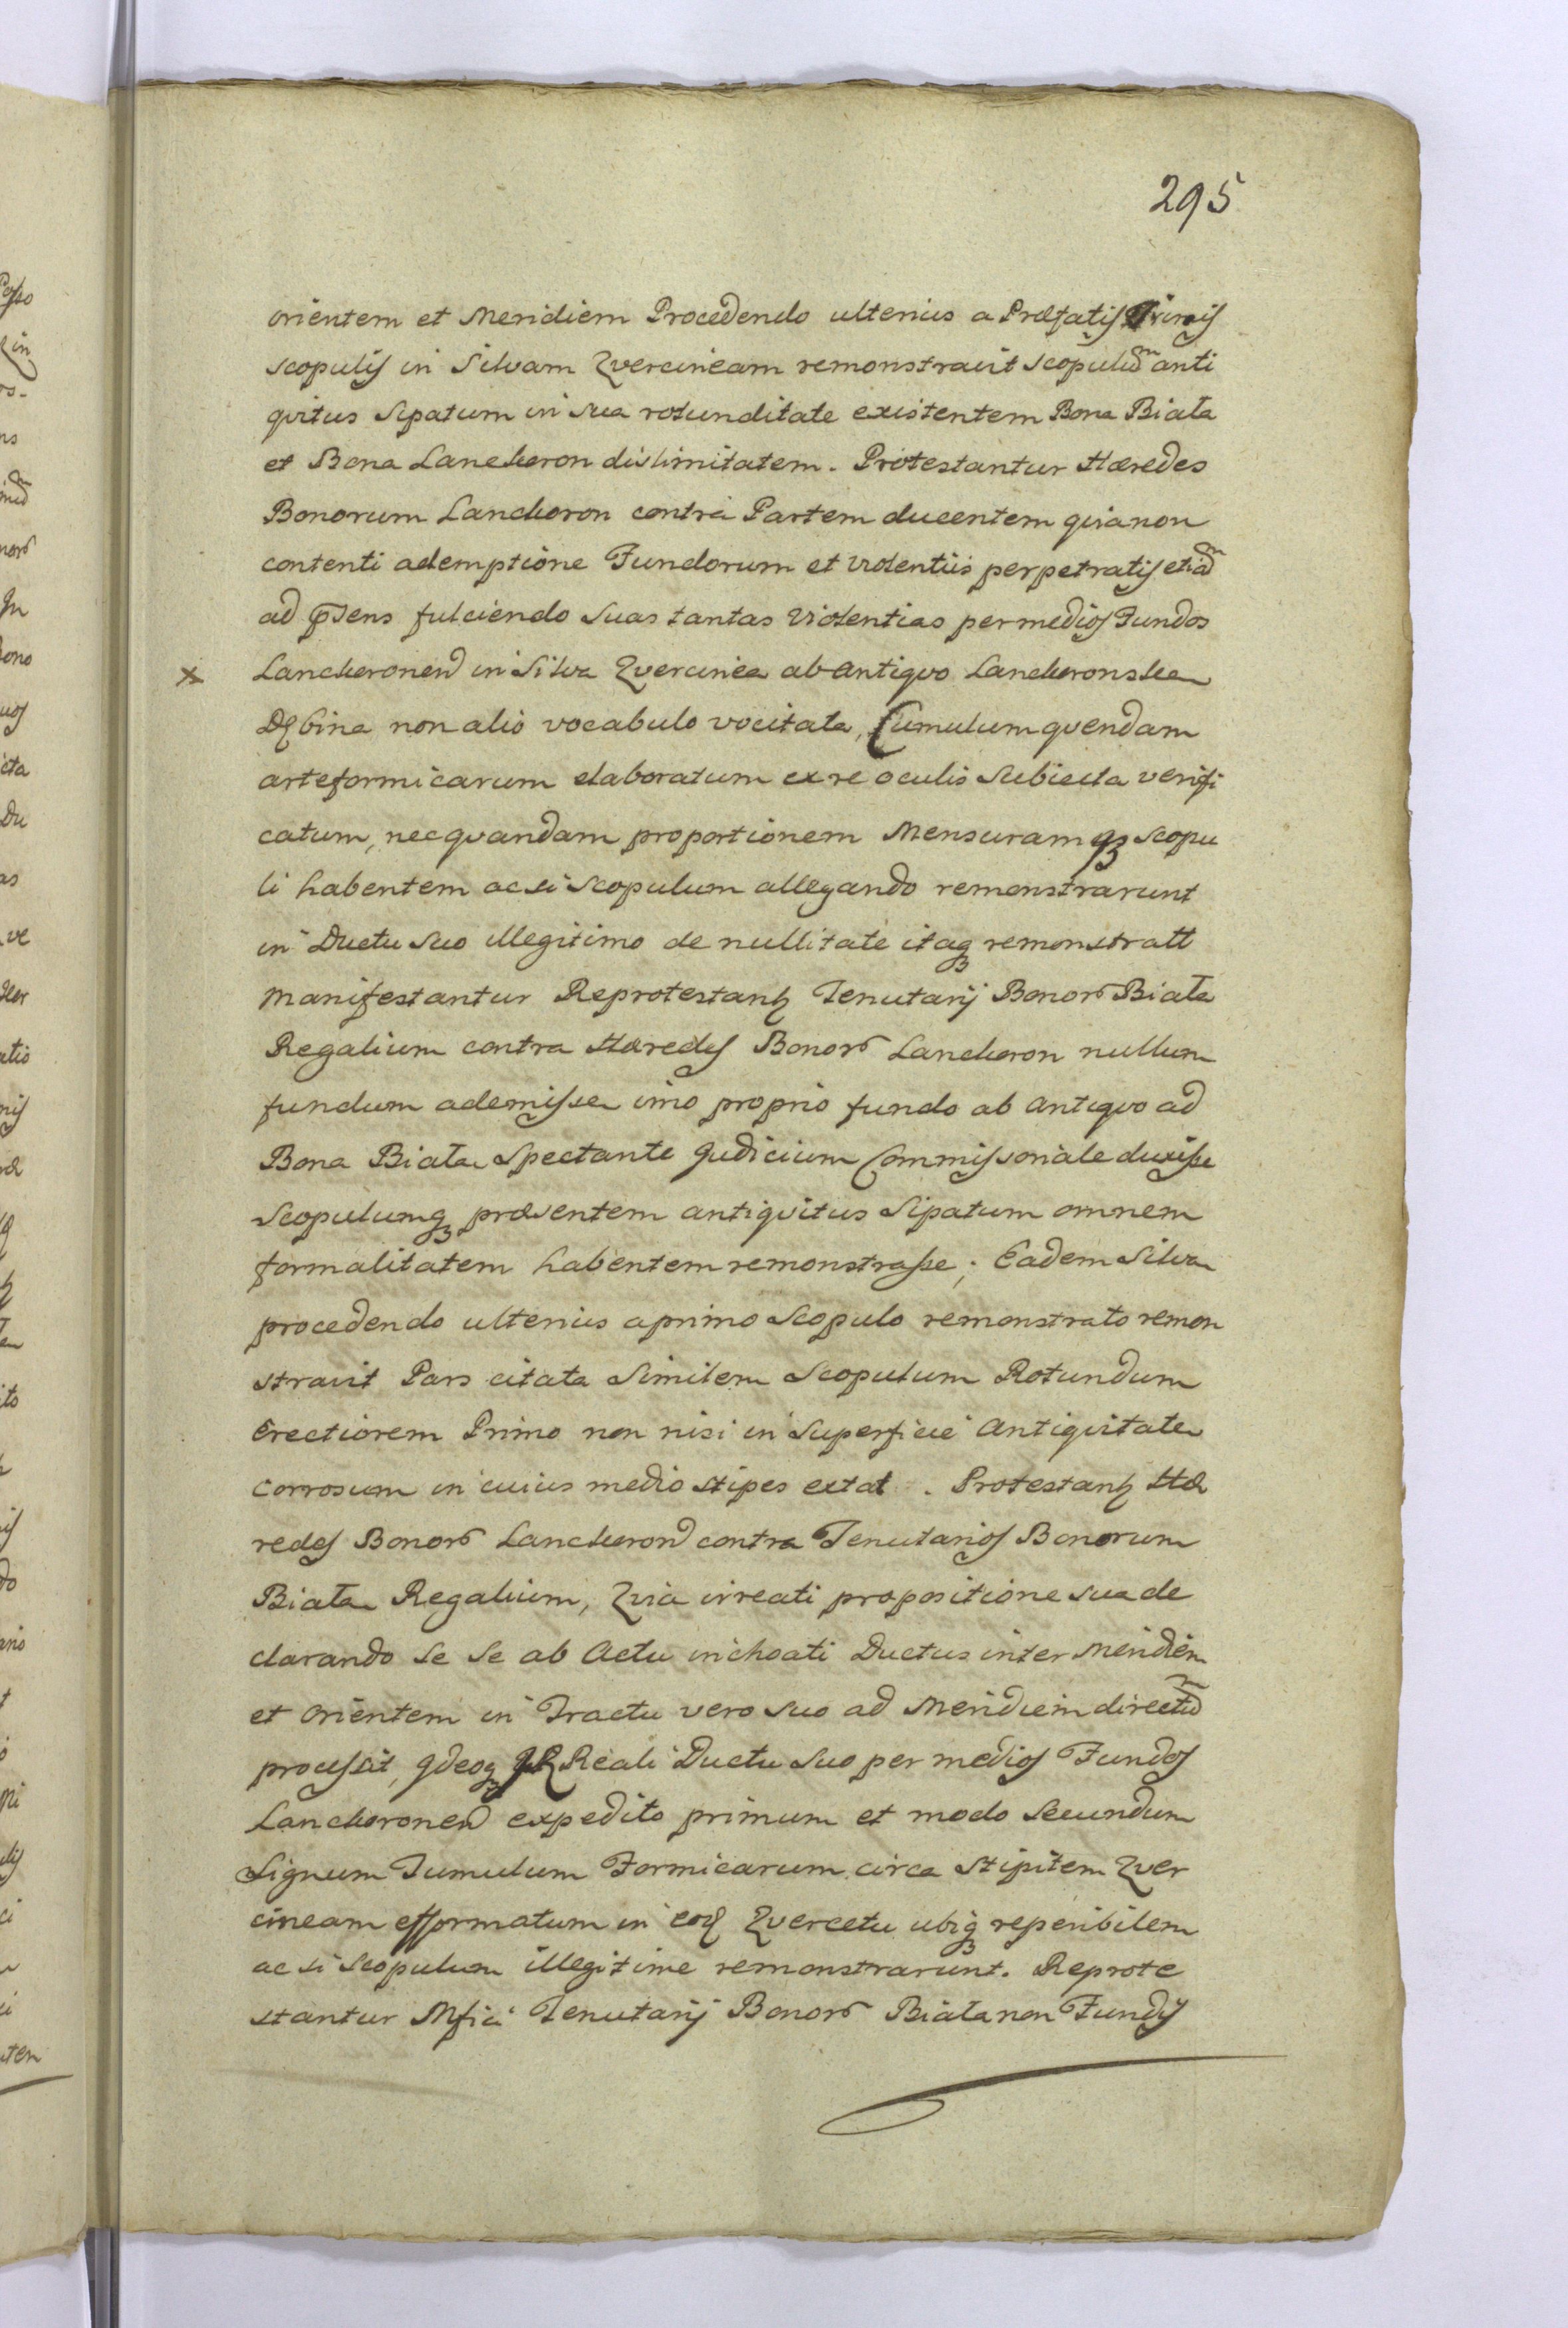 295
orientem et Meridiem Procedendo ulterius a Præfatis Primis
scopulis in Silvam Quercineam remonstravit scopulum anti
quitus Sipatum in sua rotunditate existentem Bona Biała
et Bona Lanckoron dislimitatem. Protestantur Hæredes
Bonorum Lanckoron contra Partem ducentem quia non
contenti ademptione Fundorum et violentiis perpetratis etiam
ad pñsens fulciendo suas tantas violentias per medios Fundos
x Lanckoronen in Silva Quercinea ab antiquo Lanckoronska
Dębina non alio vocabulo vocitata, Cumulum quendam
arte formicarum elaboratum ex re oculis subiecta verifi
catum, nec quandam proportionem Mensuramqȝ scopu
li habentem ac si scopulum allegando remonstrarunt
in Ductu suo illegitimo de nullitate itaqȝ remonstratt
manifestantur Reprotestantȝ Tenutarij Bonor Biała
Regalium contra Hæredes Bonor Lanckoron nullum
fundum ademisse imo proprio fundo ab antiquo ad
Bona Biała Spectante Judicium Commissoriale duxisse
scopulumqȝ præsentem antiquitus Sipatum omnem
formalitatem habentem remonstrasse; Eadem Silva
procedendo ulterius a primo scopulo remonstrato remon
stravit Pars citata Similem Scopulum Rotundum
Erectiorem Primo non nisi in superficie Antiquitate
corrosum in cuius medio stipes extat. Protestantȝ Hæ
redes Bonor Lanckoron contra Tenutarios Bonorum
Biała Regalium, Quia irreati propositione sua de
clarando se se ab Actu inchoati Ductus inter Meridiem
et Orientem in Tractu vero suo ad Meridiem directum
processit, Ideoqȝ Reali Ductu suo per medios Fundos
Lanckoronen expedito primum et modo secundum
Signum Tumulum Formicarum circa Stipitem Quer
cineam efformatum in eod Quercetu ubiqȝ reperibilem
ac si scopulum illegitime remonstrarunt. Reprote
stantur Mfici Tenutarij Bonor Biała non Fundis